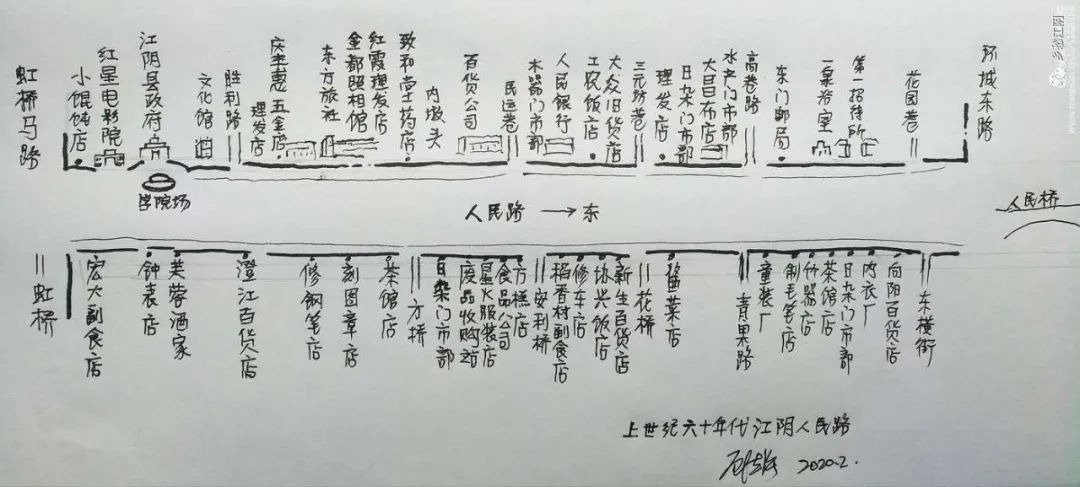 乡愁江阴
虹桥马路
小馄饨店
红星电影院
江阴县政府
学院场
文化馆
胜利路
理发店
五金店
东方旅社
金都照相馆
红霞理发店
致和堂药店
内墩头
百货公司
民运巷
木器门市部
人民银行
工农饭店
大众旧货店
三元坊巷
理发店
日杂门市部
大昌布店
水产门市部
高巷路
东门邮局
第一招待所
花园巷
环城东路
人民路 → 东
人民桥
虹桥
宏大副食店
钟表店
芙蓉酒家
澄江百货店
修钢笔店
刻图章店
茶馆店
方桥
日杂门市部
废品收购站
星火服装店
食品公司
方糕店
安利桥
稻香村副食店
修车店
协兴饭店
新生百货店
花桥
酱菜店
青果路
童装厂
制毛笔店
什器店
茶馆店
日杂门市部
内衣厂
向阳百货店
东横街
上世纪六十年代江阴人民路
2020.2.